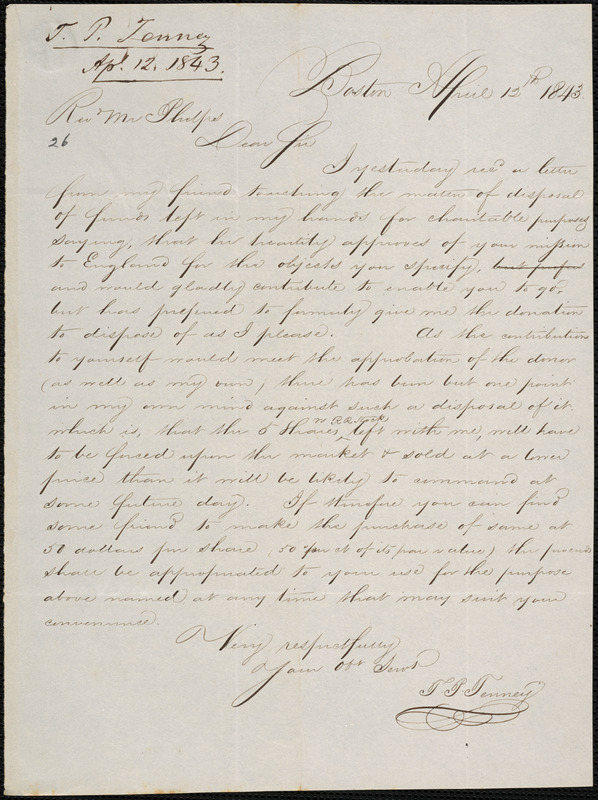 T. P. Tenney
Apl. 12. 1843.
Boston April 12th 1843.
Revd Mr Phelps
26
Dear Sir
I yesterday recd a letter
from my friend touching the matter of disposal
of funds left in my hands for charitable purposes
saying, that he heartily approves of your mission
to England for the objects you specify, but prefers
and would gladly contribute to enable you to go,
but has prefered to give me the donation
to dispose of as I please. As the contribution
to yourself would meet the approbation of the donor
(as well as my own) there has been but one point
in my own mind against such a disposal of it
which is, that the 5 Shares W.R.R. Stock left with me, will have
to be forced upon the market & sold at a lower
price than it will be likely to command at
some future day. If therefore you can find
some friend to make the purchase of same at
50 dollars per share (50 per ct of its par value) the proceeds
shall be appropriated to your use for the purpose
above named at any time that may suit your
convenience.
Very respectfully
Your Obt Servt
T. P. Tenney